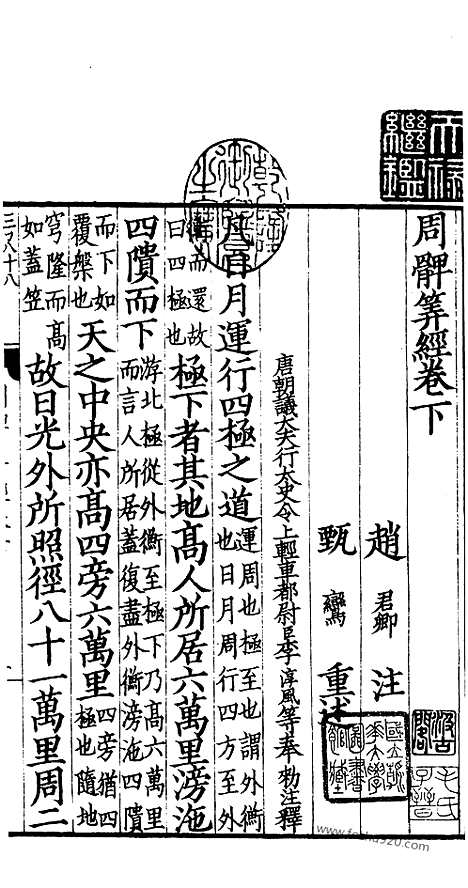 周髀筭經卷下
趙君卿注
甄鸞重述
唐朝議大夫行太史令上輕車都尉臣李淳風等奉勑注釋
凡日月運行四極之道運周也極至也謂外衡也日月周行四方至外
衡而還故曰四極也極下者其地髙人所居六萬里滂沲
四隤而下游北極從外衡至極下乃髙六萬里而言人所居蓋復盡外衡滂沲四隤
而下如覆槃也天之中央亦髙四旁六萬里四旁猶四極也隨地
穹隆而髙如蓋笠故日光外所照徑八十一萬里周二
天禄繼鑑
乾隆御覽之寶
汲古閣
毛氏子晉